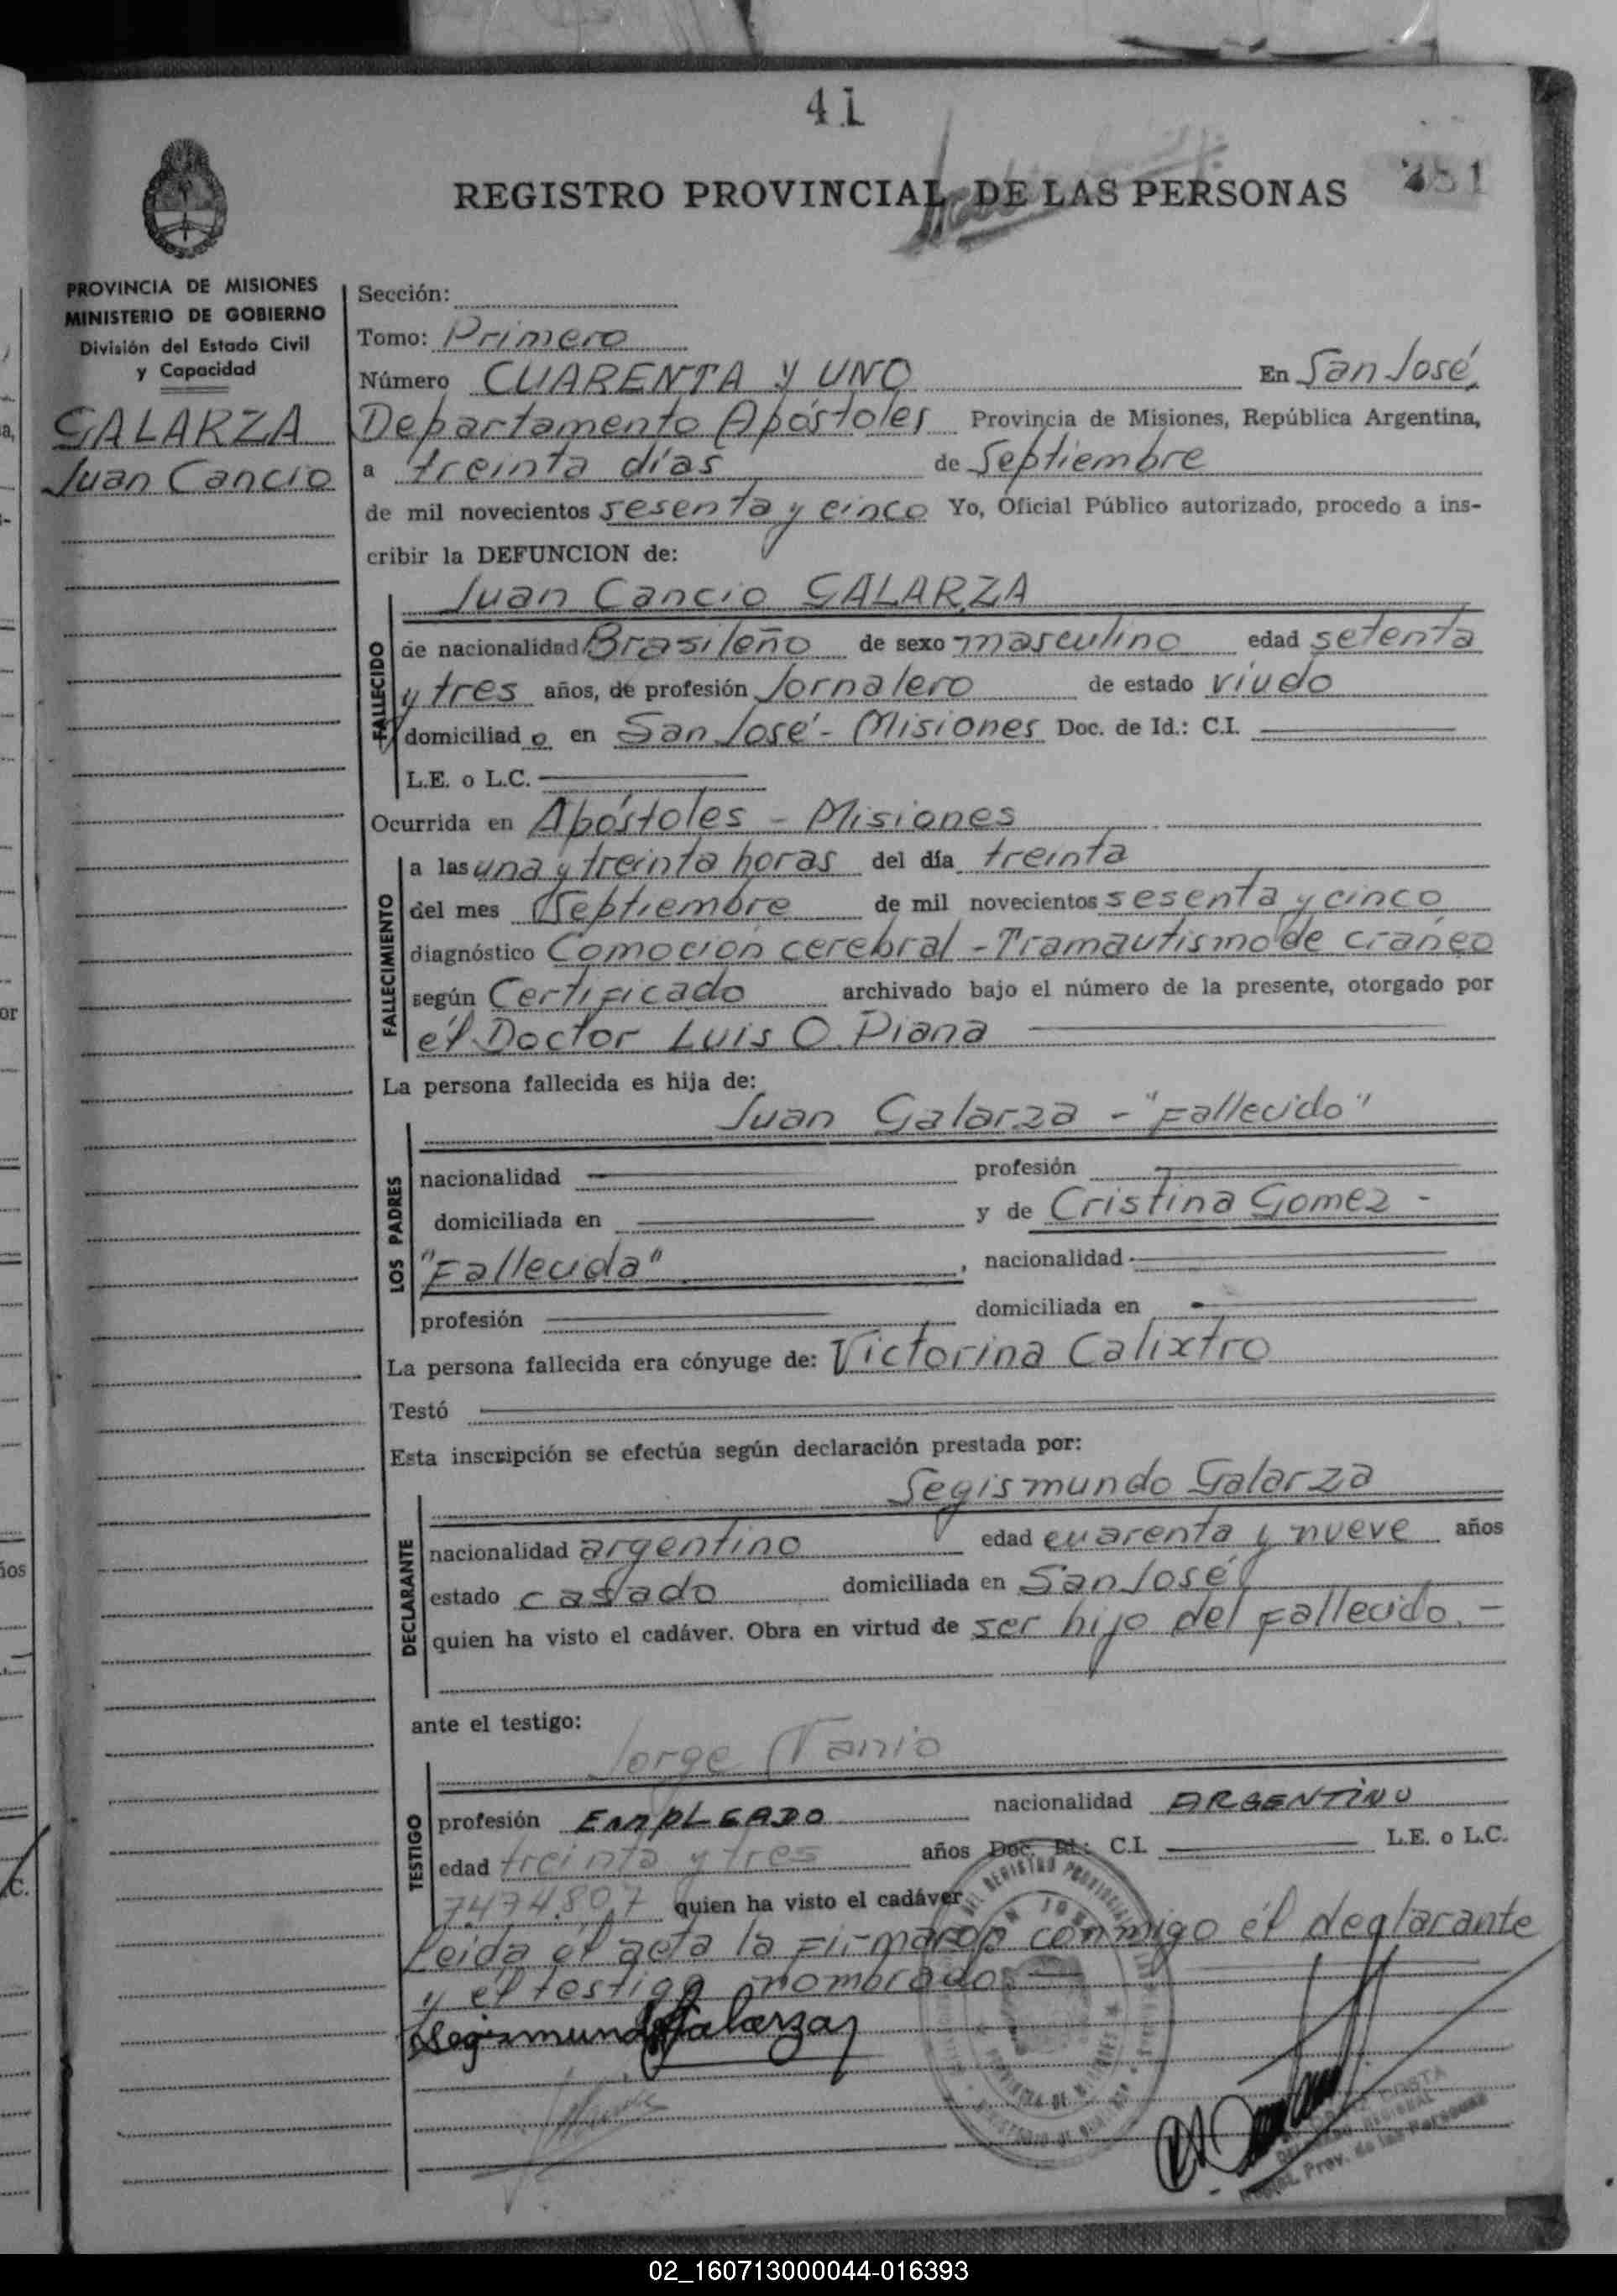 41
281
REGISTRO PROVINCIAL DE LAS PERSONAS
PROVINCIA DE MISIONES
MINISTERIO DE GOBIERNO
División del Estado Civil
y Capacidad
GALARZA
Juan Cancio
Sección:
Tomo: Primero
Número CUARENTA Y UNO En San José,
Departamento Apóstoles Provincia de Misiones, República Argentina,
a treinta días de Septiembre
de mil novecientos sesenta y cinco Yo, Oficial Público autorizado, procedo a ins-
cribir la DEFUNCION de:
Juan Cancio GALARZA
FALLECIDO
de nacionalidad Brasileño de sexo masculino edad setenta
y tres años, de profesión Jornalero de estado viudo
domiciliad o en San José - Misiones Doc. de Id.: C.I.
L.E. o L.C.
Ocurrida en Apóstoles - Misiones
FALLECIMIENTO
a las una y treinta horas del día treinta
del mes Septiembre de mil novecientos sesenta y cinco
diagnóstico Comoción cerebral - Tramautismo de craneo
según Certificado archivado bajo el número de la presente, otorgado por
él Doctor Luis O. Diana
La persona fallecida es hija de:
Juan Galarza - "Fallecido"
LOS PADRES
nacionalidad profesión
domiciliada en y de Cristina Gomez -
"Fallecida", nacionalidad
profesión domiciliada en
La persona fallecida era cónyuge de: Victorina Calixtro
Testó
Esta inscripción se efectúa según declaración prestada por:
Segismundo Galarza
DECLARANTE
nacionalidad argentino edad cuarenta y nueve años
estado casado domiciliada en San José
quien ha visto el cadáver. Obra en virtud de ser hijo del fallecido. -
ante el testigo:
Jorge Tanio
TESTIGO
profesión EMPLEADO nacionalidad ARGENTINO
edad treinta y tres años Doc. Id.: C.I. L.E. o L.C.
7.474.807 quien ha visto el cadáver
Leida él acta la firmaron conmigo él deglarante
y él testigo nombrado -
Segismundo Galarza
COSTA
REGIONAL
Prov. de las Personas
02_160713000044-016393